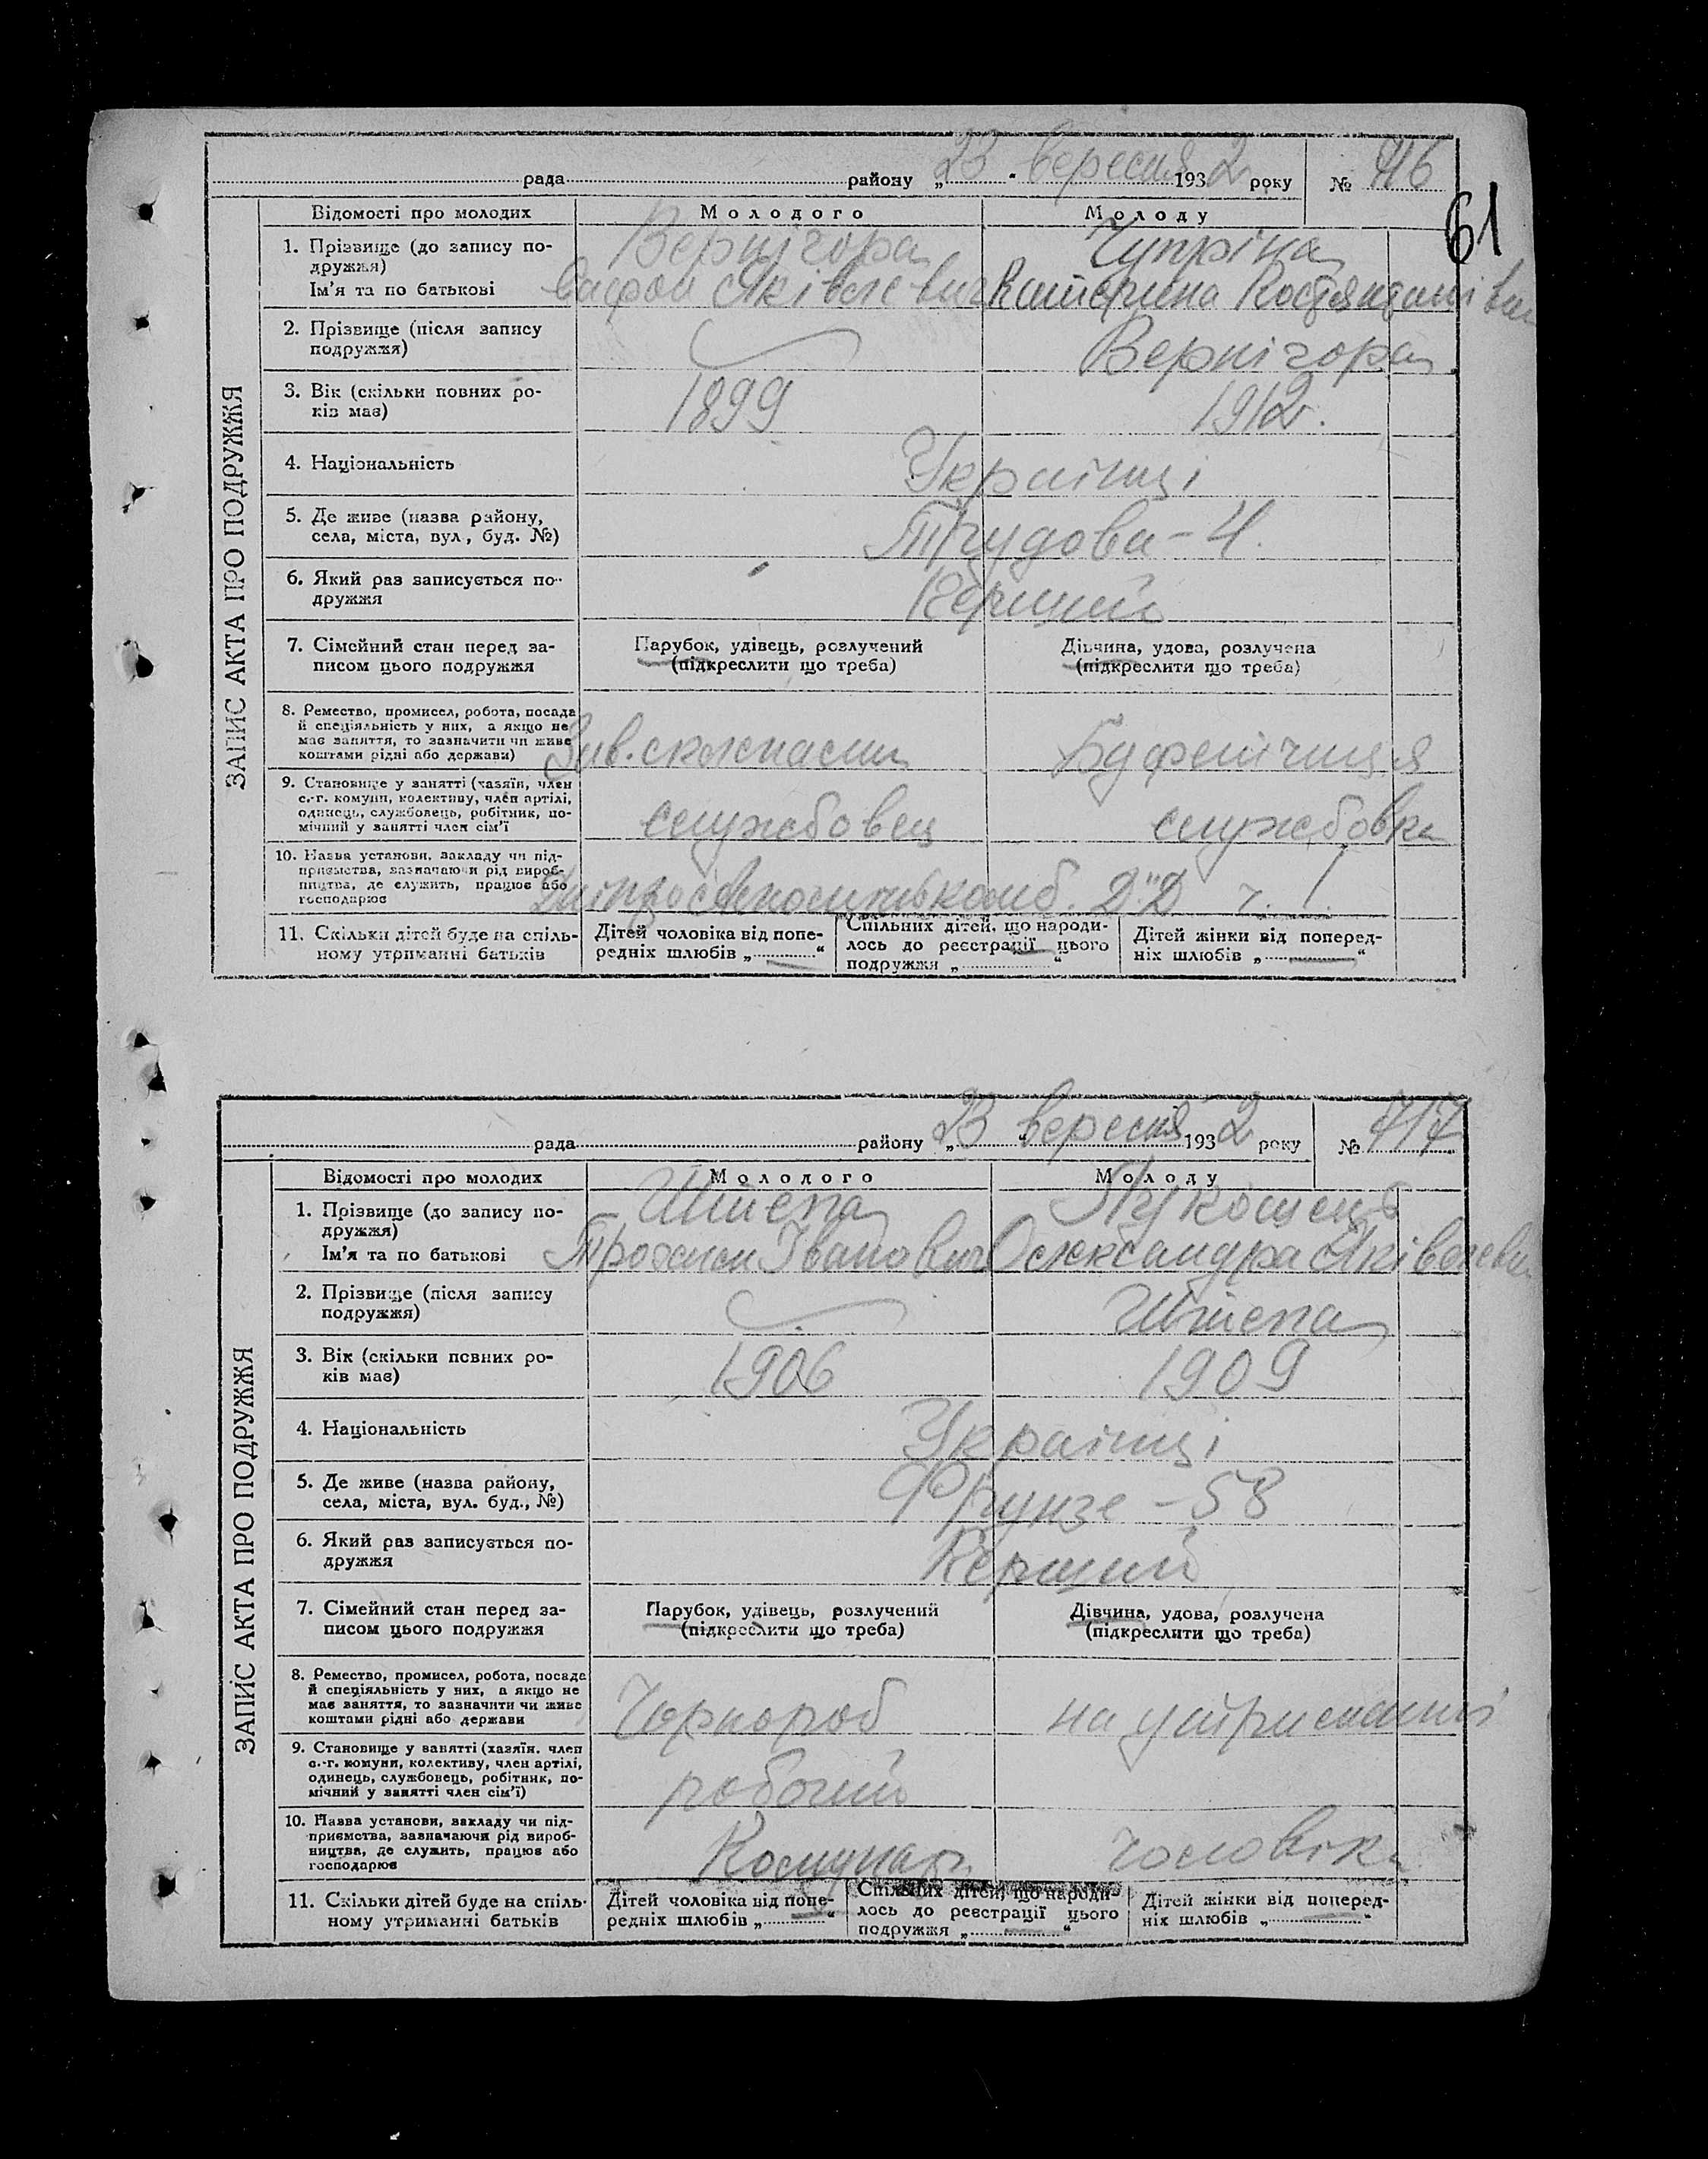 рада району „23" вересня 1932 року № 716
61
ЗАПИС АКТА ПРО ПОДРУЖЖЯ
Відомості про молодих Молодого Молоду
1. Прізвище (до запису по- Вернігора Чупріна
дружжя)
Ім'я та по батькові Яківлевич Катерина Костянтинівна
2. Прізвище (після запису Вернігора
подружжя)
3. Вік (скільки повних ро- 1899 1912
ків має)
4. Національність Українці
5. Де живе (назва району, Трудова - 4.
села, міста, вул, буд. №)
6. Який раз записується по- Перший
дружжя
7. Сімейний стан перед за- Парубок, удівець, розлучений Дівчина, удова, розлучена
писом цього подружжя (підкреслити що треба) (підкреслити що треба)
8. Ремество, промисел, робота, посада
й спеціяльність у них, а якщо не
має заняття, то зазначити чи живе Зав. Буфетчиця
коштами рідні або держави)
9. Становище у занятті (хазяїн, член
с.-г. комуни, колективу, член артілі,
одинець, службовець, робітник, по- службовец службовка
мічний у занятті член сім'ї
10. Назва установи, закладу чи під-
приємства, зазначаючи рід вироб-
ництва, де служить, працює або Д.Д ч. 1.
господарює
11. Скільки дітей буде на спіль- Дітей чоловіка від попе- Спільних дітей, що народи- Дітей жінки від поперед-
ному утриманні батьків редніх шлюбів „—“ лось до реєстрації цього ніх шлюбів „—“
подружжя „ “
рада району „23" вересня 1932 року № 717
ЗАПИС АКТА ПРО ПОДРУЖЖЯ
Відомості про молодих Молодого Молоду
1. Прізвище (до запису по- Штепа
дружжя)
Ім'я та по батькові Трохим Іванович Олександра Яківлевна
2. Прізвище (після запису Штепа
подружжя)
3. Вік (скільки повних ро- 1906 1909
ків має)
4. Національність Українці
5. Де живе (назва району, Фрунзе - 58
села, міста, вул. буд., №)
6. Який раз записується по- Перший
дружжя
7. Сімейний стан перед за- Парубок, удівець, розлучений Дівчина, удова, розлучена
писом цього подружжя (підкреслити що треба) (підкреслити що треба)
8. Ремество, промисел, робота, посада
й спеціяльність у них, а якщо не
має заняття, то зазначити чи живе Чорнороб на утриманні
коштами рідні або держави
9. Становище у занятті (хазяїн. член
с.-г. комуни, колективу, член артілі,
одинець, службовець, робітник, по- робочий
мічний у занятті член сім'ї)
10. Назва установи, закладу чи під-
приємства, зазначаючи рід вироб-
ництва, де служить, працює або Комунар чоловіка
господарює
11. Скільки дітей буде на спіль- Дітей чоловіка від попе- Спільних дітей, що народи- Дітей жінки від поперед-
ному утриманні батьків редніх шлюбів „—“ лось до реєстрації цього ніх шлюбів „—“
подружжя „—“